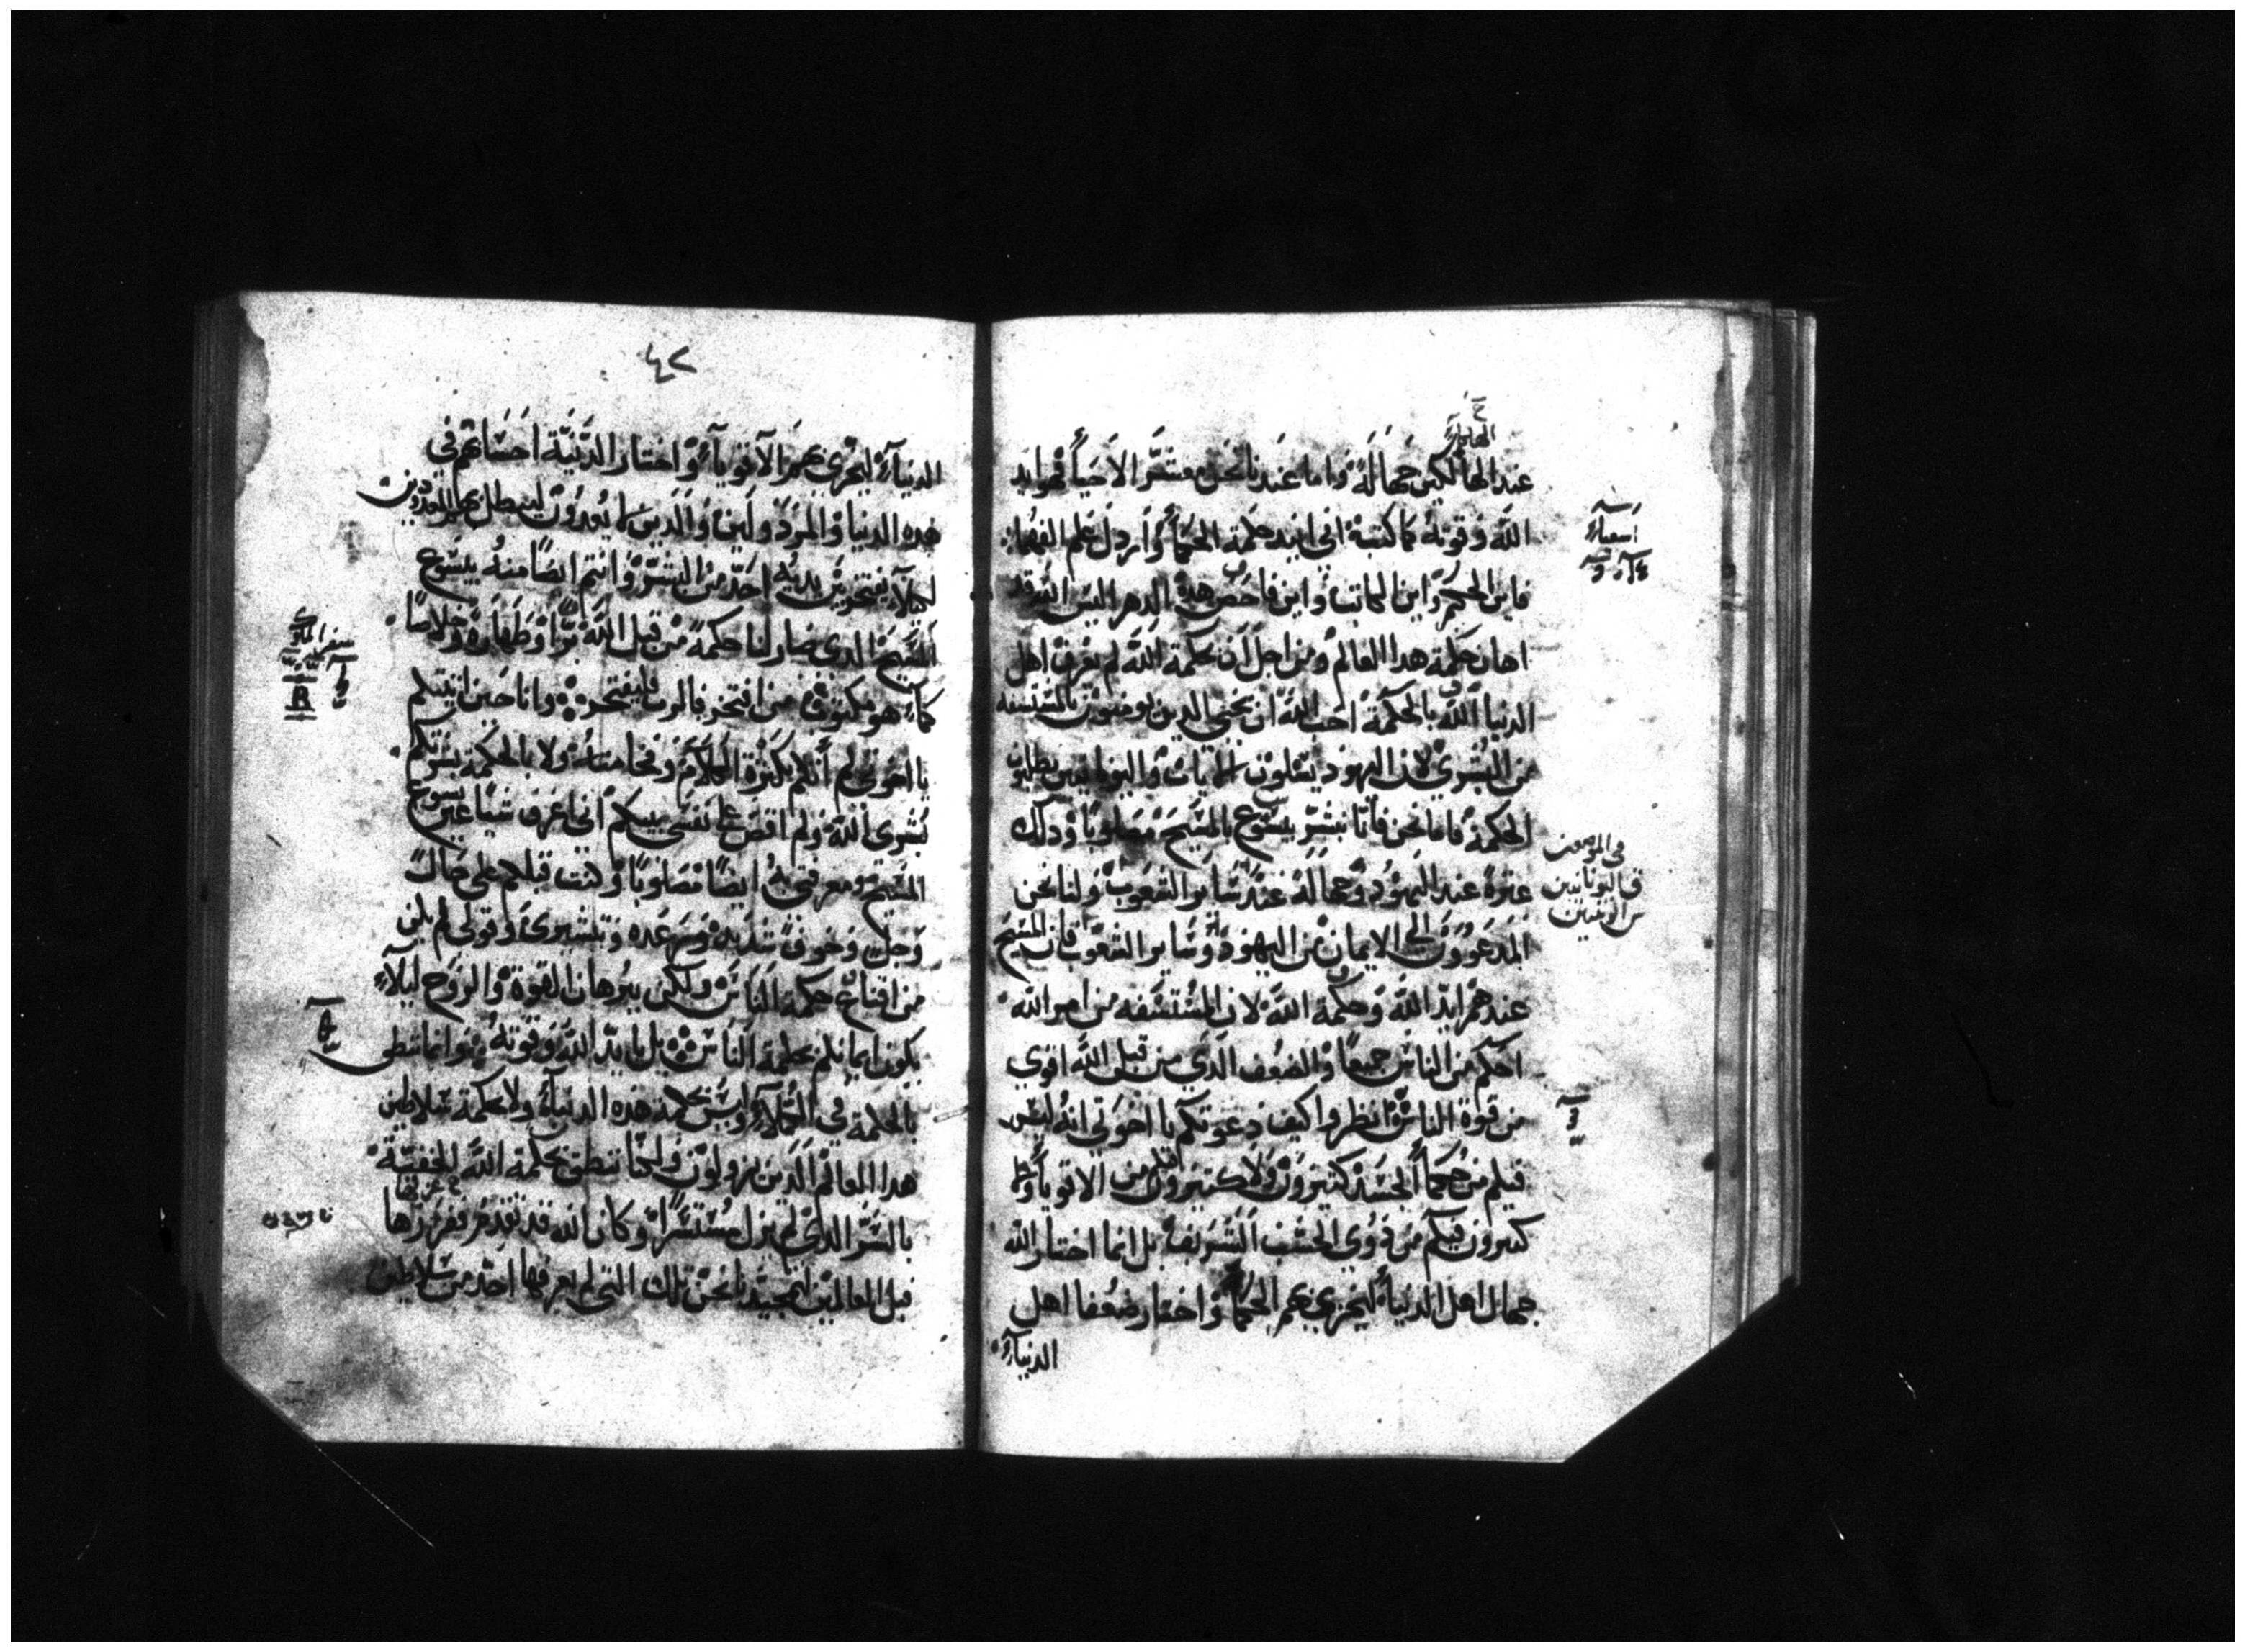 عند الهالكين جهالة واما عند نا نحن معشر الاحيا فهو ايد
الله وقوته كما كتب اني ابيد حكمة الحكما وارذل علم الفهما
فاين الحكيم واين الكاتب واين فاحص هذه الدهر اليس الله قد
اهان حكمة هدا العالم ومن اجل ان بحكمة الله لم يعرف اهل
الدنيا الله بالحكمة احب الله ان يحيي الدين يومنون بالمستسفه
من البشرى لان اليهود يسلون الايات واليونانيين يطلبون
الحكمة فاما نحن فانا نبشر بيسوع المسيح مصلوبا ودلك
عثرة عند اليهود وجهالة عند ساير الشعوب ولنا نحن
المدعوون الى الايمان من اليهود وساير الشعوب فان المسيح
عندهم ايد الله وحكمة الله لان المستسفه من امر الله
احكم من الناس جميعا والضعف الدي من قبل الله اقوى
من قوة الناس انظروا كيف دعوتكم يا اخوتي انه ليس
فيكم من حكما الجسد كثيرون ولا كتيرون من الاقويا ولا
كثيرون فيكم من ذوي الحسب الشريف بل انما اختار الله
جهال اهل الدنيا ليخزي بهم الحكما واختار ضعفا اهل
الدنيا
٤٢
الدنيا ليخزي بهم الاقويا واختار الدنية احسابهم في
هده الدنيا والمردولين والدين لا يعدون ليبطل بهم المعدودين
ليلا يفتخر بين يديه احد من البشر وانتم ايضا منه بيسوع
المسيح الدي صار لنا حكمة من قبل الله وبرا وطهارة وخلاصا
كما هو مكتوب من افتخر فبالرب فليفتخر وانا حين اتيتكم
يا اخوتي لم اتكم بكثرة الكلام وفخامته ولا بالحكمة بشرتكم
بشرى الله ولم اقض على نفسي بينكم اني اعرف شيا غير يسوع
المسيح ومعرفتي به ايضا مصلوبا وكنت قبلكم على حال
وجل وخوف شديد ورعده وتبشيري وقولي لم يكن
من اقناع حكمة الناس ولكن ببرهان القوة والروح ليلا
يكون ايمانكم بحكمة الناس بل بايد الله وقوته وانما ننطق
بالحكمة في الكملا وليس بحكمة هده الدنيا ولا بحكمة سلاطين
هدا العالم الدين يزولون ولكنا ننطق بحكمة الله الخفية
بالسر الدي لم يزل مستترا وكان الله قد تقدم ففرزها
قبل العالمين لمجدنا نحن تلك التي لم يعرفها احد من سلاطين